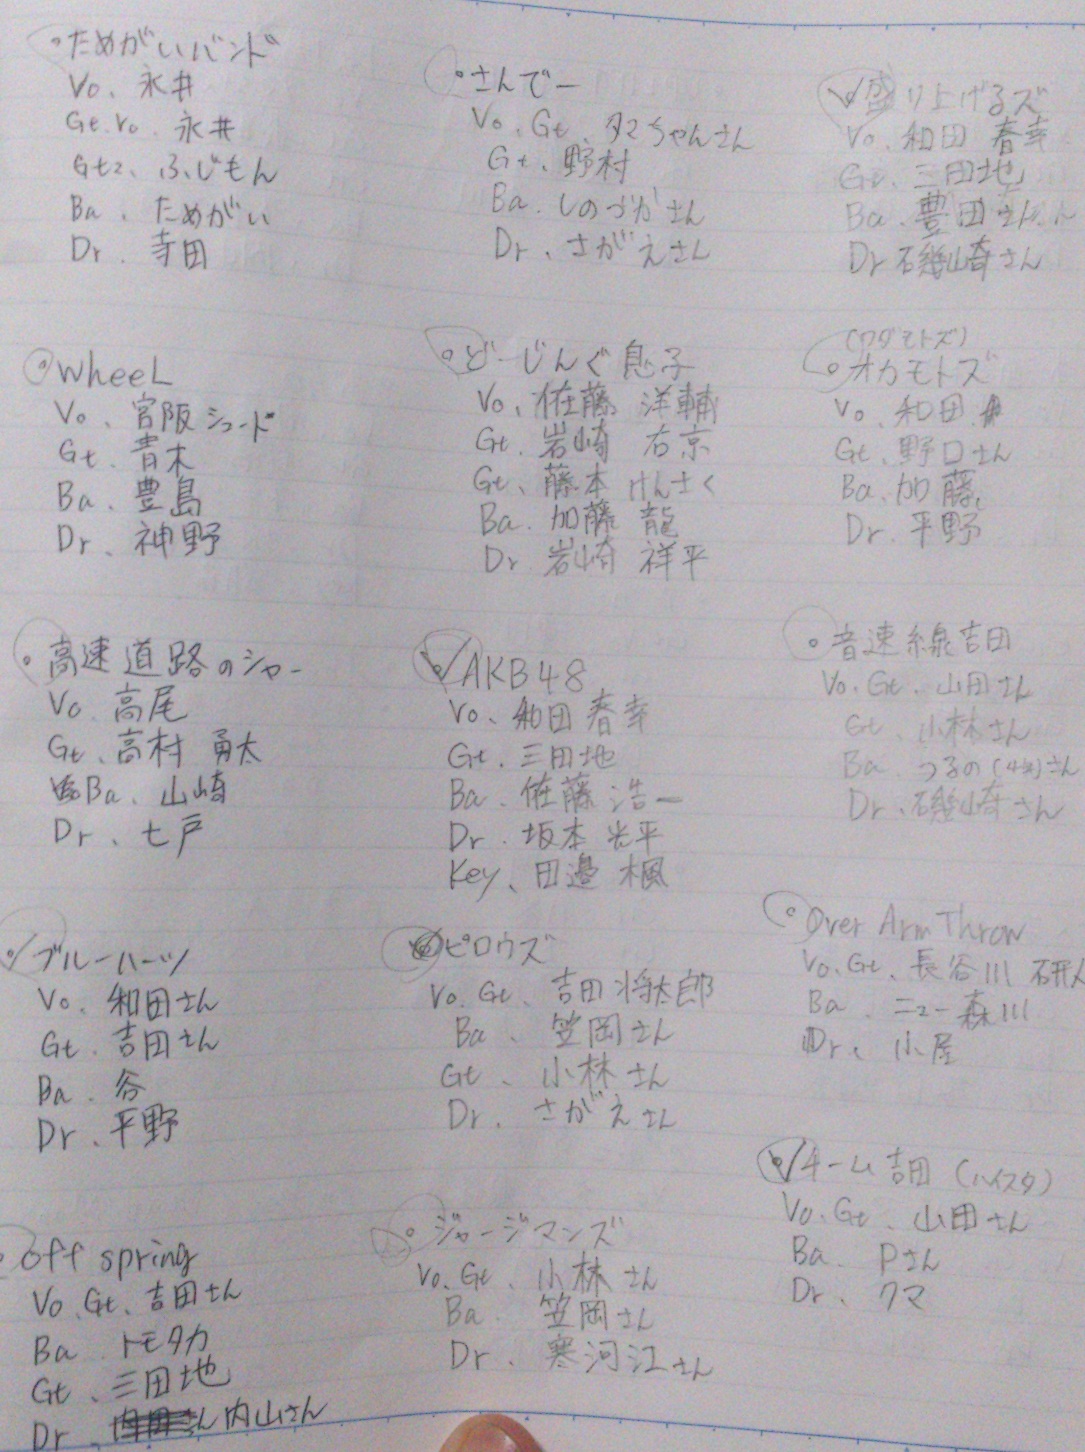 ためがいバンド
Vo、永井
Gt.Vo. 永井
Gt2、ふじもん
Ba、ためがい
Dr. 寺田
WheeL
Vo、宮阪シュード
Gt、青木
Ba、豊島
Dr、神野
高速道路のシャー
Vo 高尾
Gt、高村 勇太
Ba、山崎
Dr、七戸
ブルーハーツ
Vo、和田さん
Gt、吉田さん
Ba、谷
Dr、平野
Off spring
Vo、Gt、吉田さん
Ba トモタカ
Gt、三田地
Dr 内山さん
さんでー
Vo、Gt、タマちゃんさん
Gt、野村
Ba. しのづかさん
Dr、さがえさん
どーじんぐ息子
Vo、佐藤 洋輔
Gt、岩崎 右京
Gt、藤本 けんさく
Ba. 加藤 龍
Dr 岩崎 祥平
AKB48
Vo、和田 春幸
Gt. 三田地
Ba. 佐藤 浩一
Dr. 坂本 光平
Key、田邉 楓
ピロウズ
Vo. Gt、吉田 将太郎
Ba、笠岡さん
Gt、小林さん
Dr. さがえさん
ジャージマンズ
Vo、Gt、小林さん
Ba. 笠岡さん
Dr. 寒河江さん
盛り上げるズ
Vo. 和田 春幸
Gt. 三田地
Ba. 豊田さん
Dr 磯崎さん
(ワダモトズ)
オカモトズ
Vo、和田
Gt. 野口さん
Ba. 加藤
Dr. 平野
音速線吉田
Vo. Gt、山田さん
Gt、小林さん
Ba つるの(4年)さん
Dr、磯崎さん
Over Arm Throw
Vo.Gt、長谷川 研人
Ba、ニュー森川
Dr、小屋
チーム吉田(ハイスタ)
Vo、Gt、山田さん
Ba. Pさん
Dr、クマ